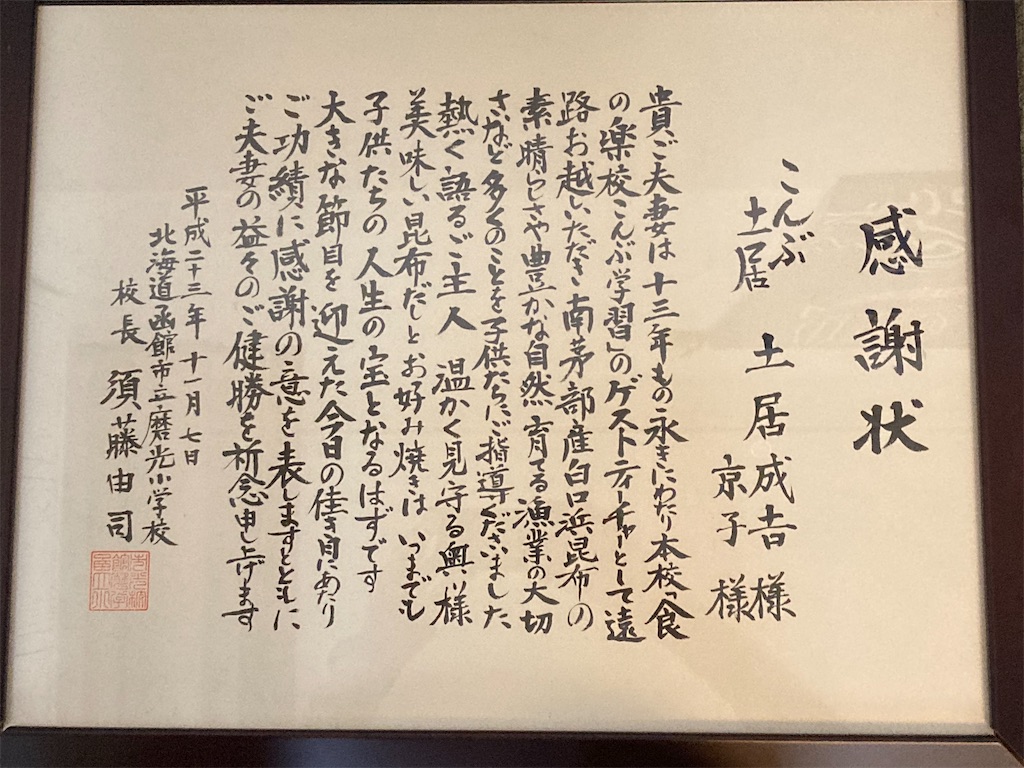 感謝状
こんぶ
土居
土居成吉様
京子様
貴ご夫妻は十三年もの永きにわたり本校「食
の楽校こんぶ学習」のゲストティーチャーとして遠
路お越しいただき南茅部産白口浜昆布の
素晴らしさや豊かな自然育てる漁業の大切
さなど多くのことを子供たちにご指導くださいました
熱く語るご主人 温かく見守る奥様
美味しい昆布だしとお好み焼きは いつまでも
子供たちの人生の宝となるはずです
大きな節目を迎えた今日の佳き日にあたり
ご功績に感謝の意を表しますとともに
ご夫妻の益々のご健勝を祈念申し上げます
平成二十三年十一月七日
北海道函館市立磨光小学校
校長 須藤由司